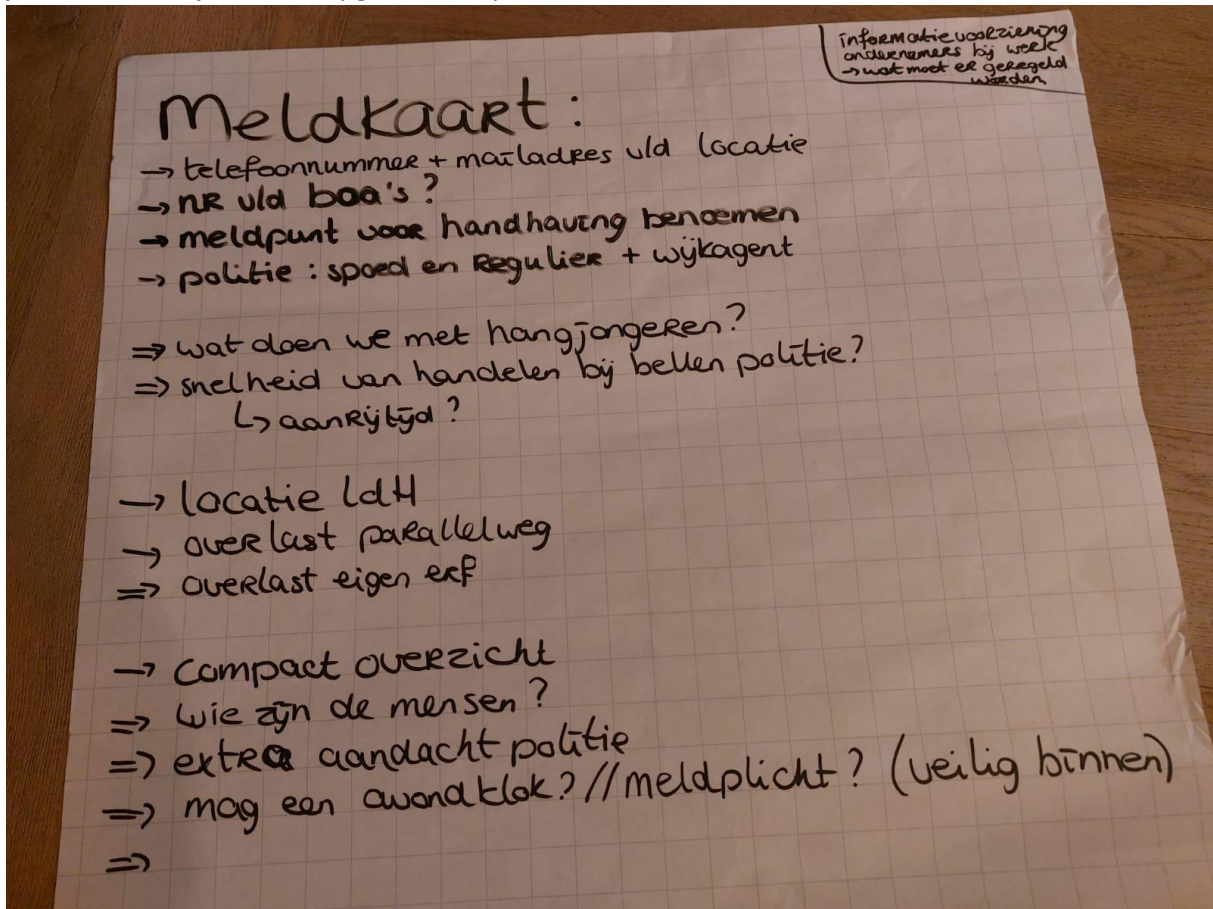 informatievoorziening
ondernemers bij werk
→ wat moet er geregeld
worden
Meldkaart:
→ telefoonnummer + mailadres v/d locatie
→ nr v/d boa's?
→ meldpunt voor handhaving benoemen
→ politie: spoed en regulier + wijkagent
⇒ wat doen we met hangjongeren?
⇒ snelheid van handelen bij bellen politie?
↳ aanrijtijd?
→ locatie LdH
→ overlast parallelweg
⇒ overlast eigen erf
→ compact overzicht
⇒ wie zijn de mensen?
⇒ extra aandacht politie
⇒ mag een avondklok? // meldplicht? (veilig binnen)
⇒